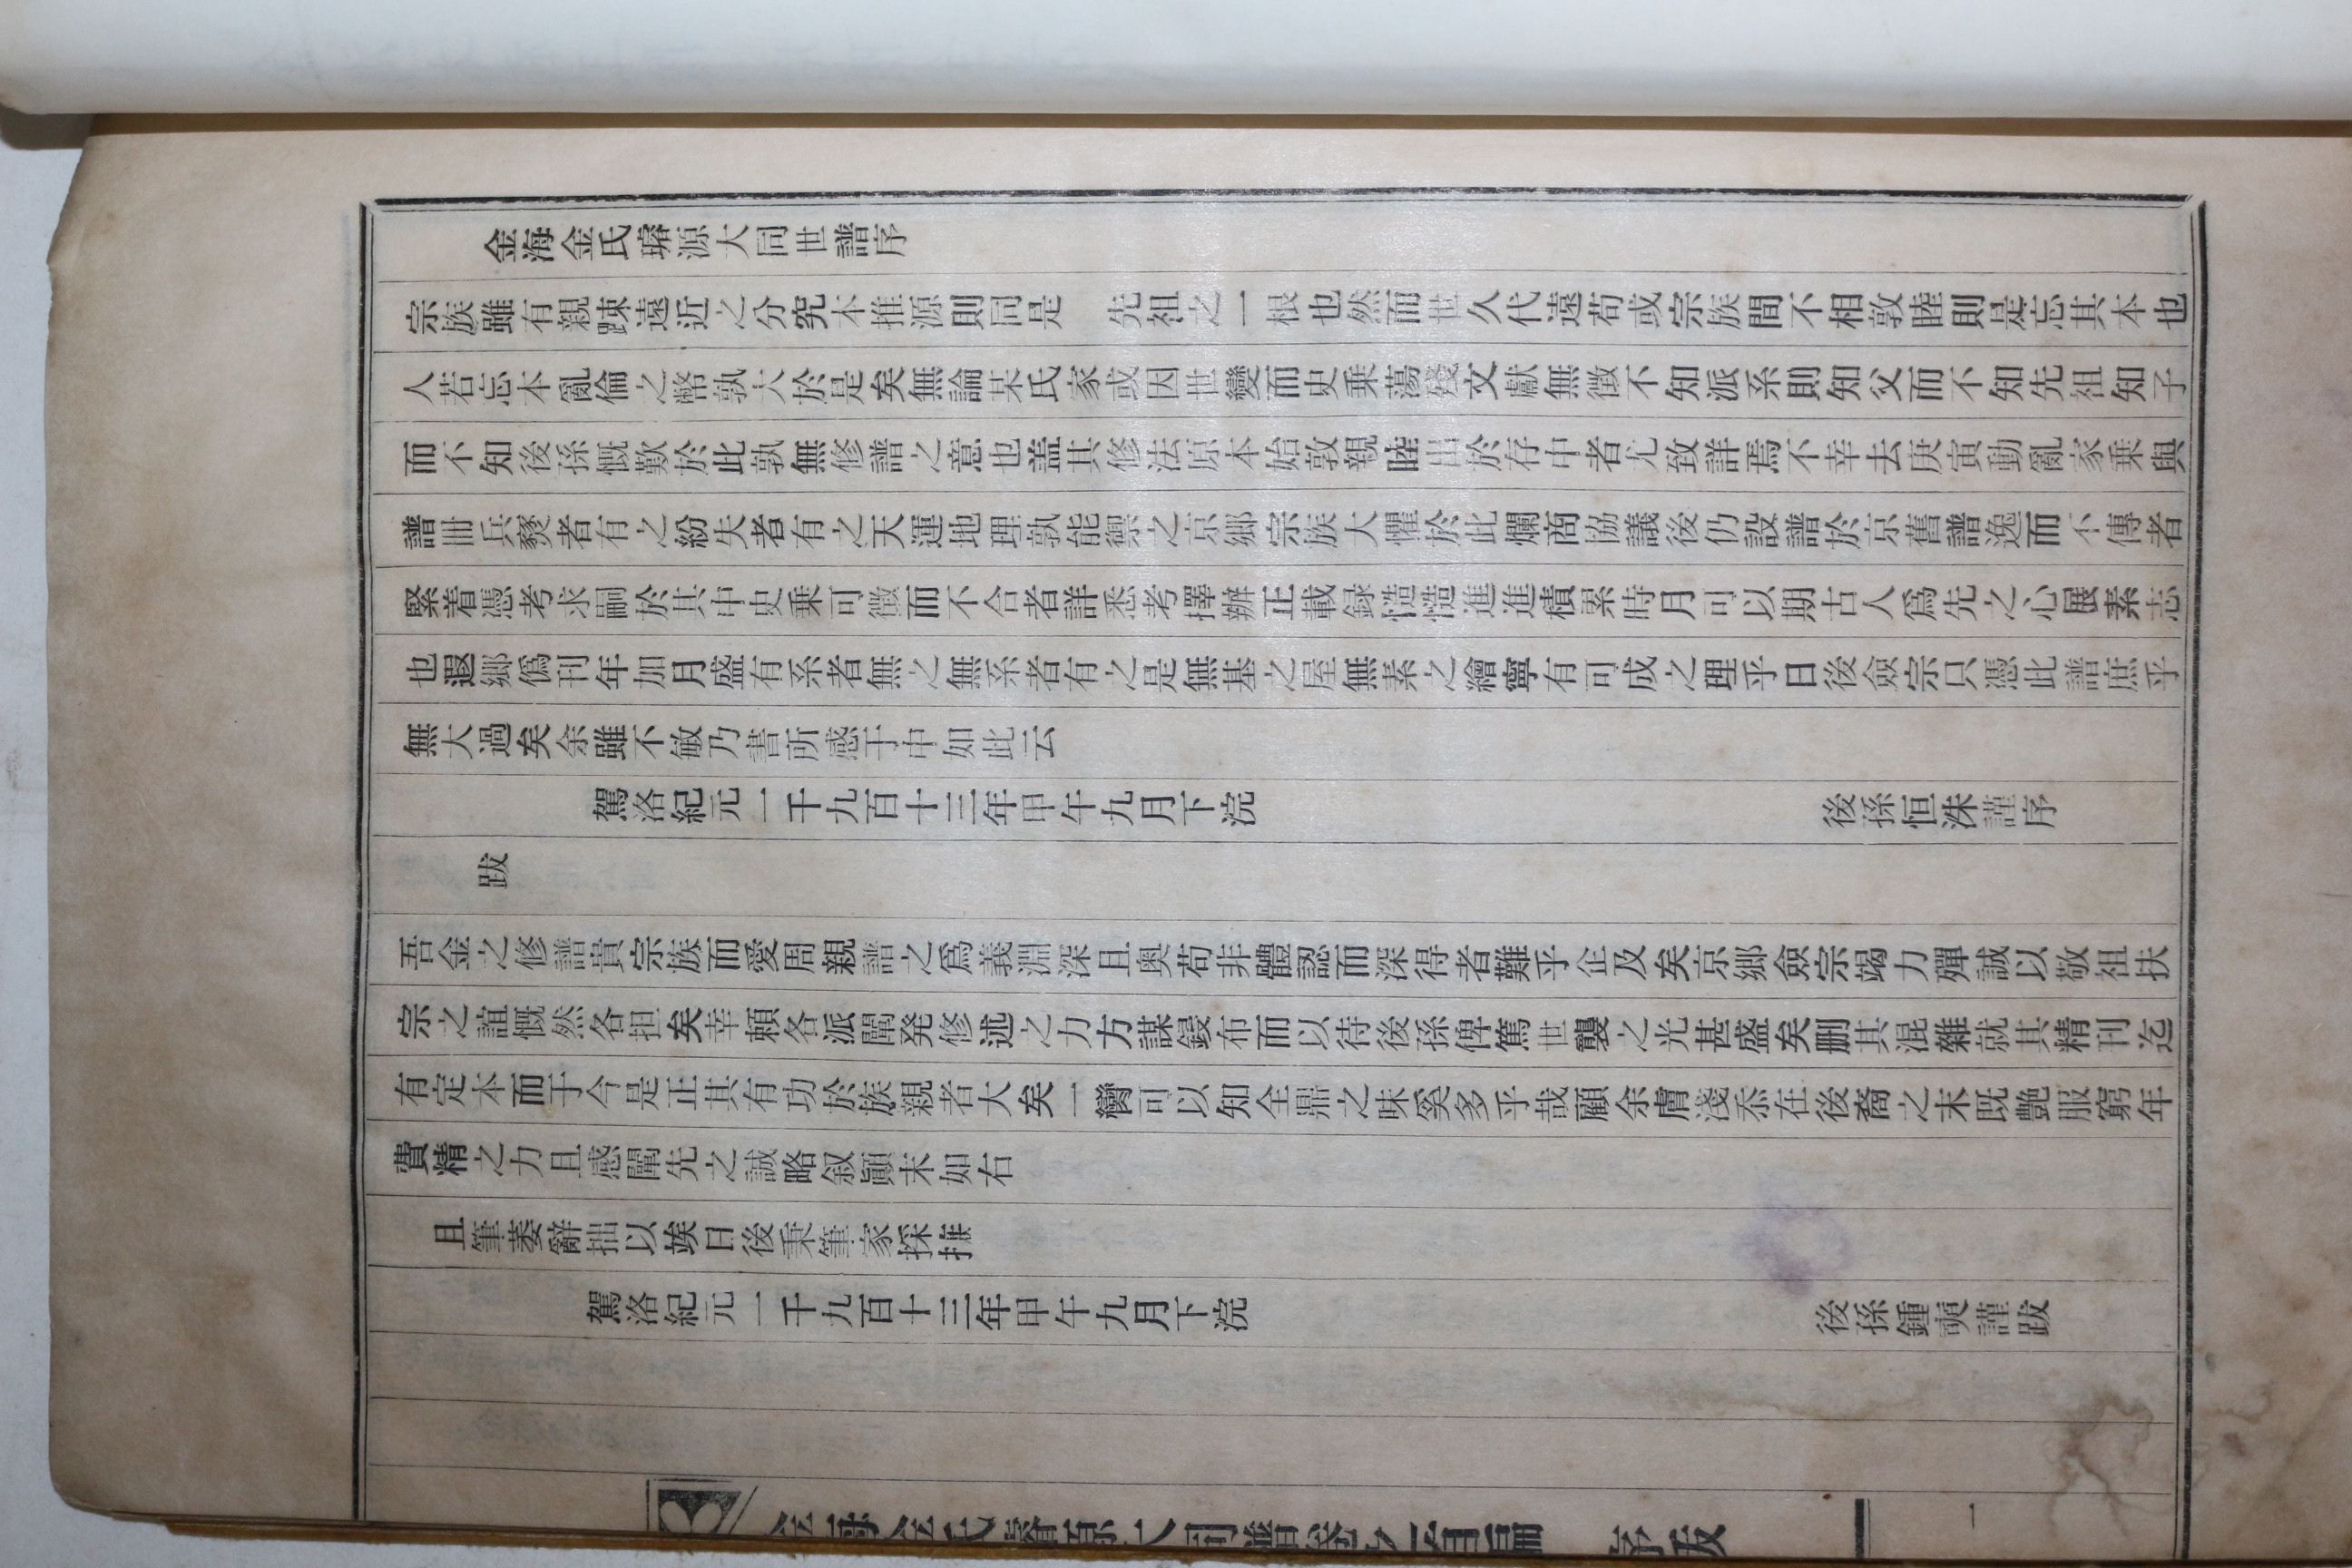 金海金氏璿源大同世譜序
宗族雖有親踈遠近之分究本推源則同是　先祖之一根也然而世久代遠苟或宗族間不相敦睦則是忘其本也
人若忘本亂倫之幣孰大於是矣無論某氏家或因世變而史乗蕩殘文獻無徴不知派系則知父而不知先祖知子
而不知後孫慨歎於此孰無修譜之意也盖其修法原本始敦親睦出於存中者尤致詳焉不幸去庚寅動亂家乗與
譜冊兵燹者有之紛失者有之天運地理孰能禦之京鄉宗族大懼於此爛商協議後仍設譜於京舊譜逸而不傳者
緊着憑考求嗣於其中史乗可徴而不合者詳悉考擇辦正載録慥慥進進積累時月可以期古人爲先之心展素志
也遐鄉僞刊年加月盛有系者無之無系者有之是無基之屋無素之繪寧有可成之理乎日後僉宗只憑此譜庶乎
無大過矣余雖不敏乃書所感于中如此云
駕洛紀元一千九百十三年甲午九月下浣　後孫恒洙謹序
跋
吾金之修譜貴宗族而愛周親譜之爲義淵深且奥苟非體認而深得者難乎企及矣京鄉僉宗竭力殫誠以敬祖扶
宗之誼慨然各担矣幸頼各派闡発修述之力方謀鋟布而以待後孫俾篤世襲之光甚盛矣删其混雜就其精刊迄
有定本而于今是正其有功於族親者大矣一臠可以知全鼎之味奚多乎哉顧余膚淺忝在後裔之末既艶服窮年
費精之力且感闡先之誠略叙顚末如右
且筆萎辭拙以竢日後秉筆家採撫
駕洛紀元一千九百十三年甲午九月下浣　後孫鍾奭謹跋
金海金氏璿源大同譜卷之首編　序跋　一